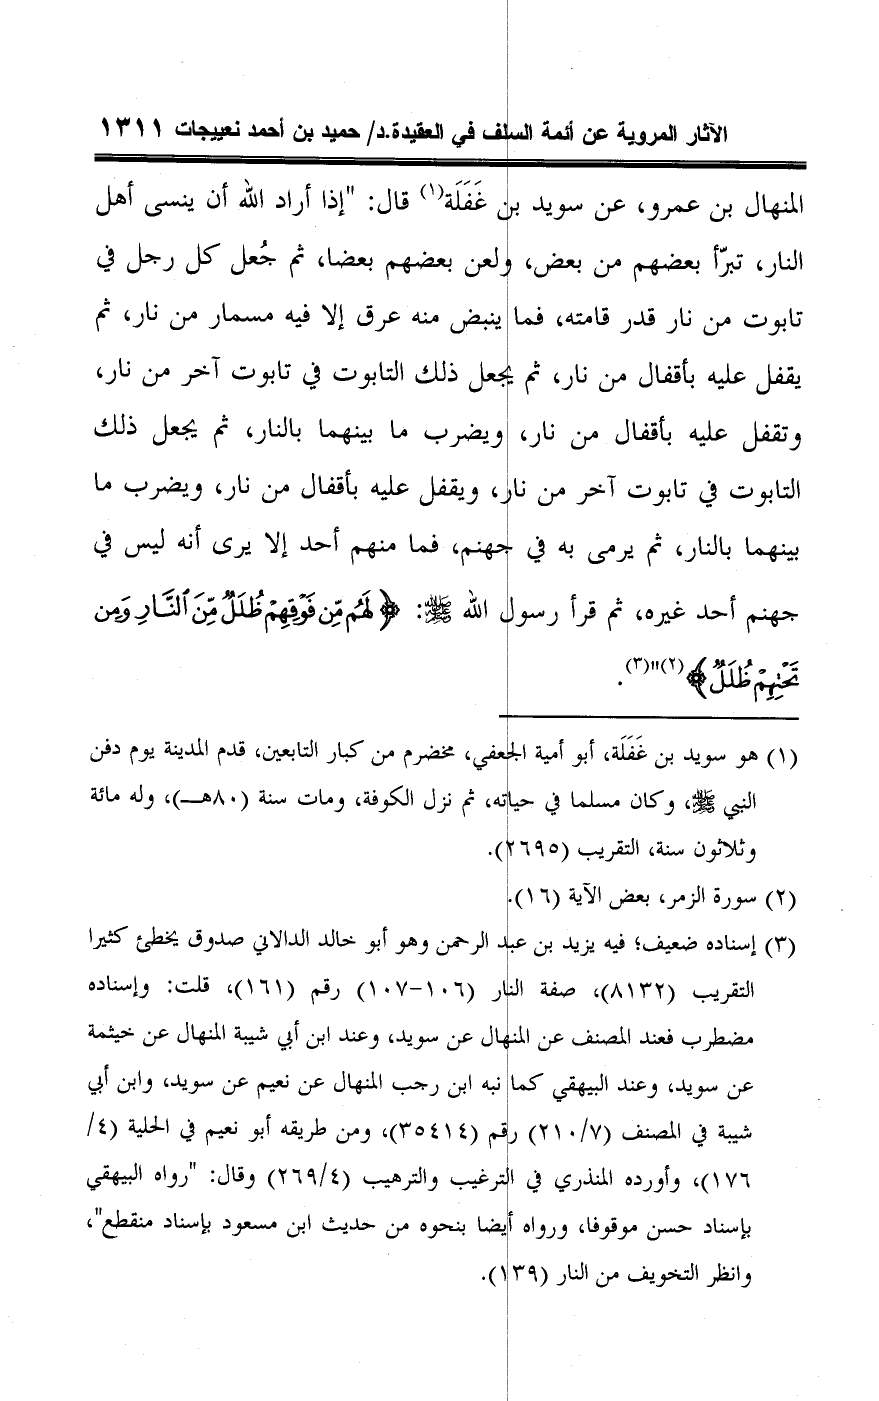 الآثار المروية عن أئمة السلف في العقيدة.د/ حميد بن أحمد نعييجات ١٣١١
المنهال بن عمرو، عن سويد بن غَفَلَة(١) قال: "إذا أراد الله أن ينسى أهل
النار، تبرّأ بعضهم من بعض، ولعن بعضهم بعضا، ثم جُعل كل رجل في
تابوت من نار قدر قامته، فما ينبض منه عرق إلا فيه مسمار من نار، ثم
يقفل عليه بأقفال من نار، ثم يجعل ذلك التابوت في تابوت آخر من نار،
وتقفل عليه بأقفال من نار، ويضرب ما بينهما بالنار، ثم يجعل ذلك
التابوت في تابوت آخر من نار، ويقفل عليه بأقفال من نار، ويضرب ما
بينهما بالنار، ثم يرمى به في جهنم، فما منهم أحد إلا يرى أنه ليس في
جهنم أحد غيره، ثم قرأ رسول الله ﷺ: ﴿لَهُم مِّن فَوْقِهِمْ ظُلَلٌ مِّنَ ٱلنَّارِ وَمِن
تَحْتِهِمْ ظُلَلٌ﴾(٢)"(٣).
(١) هو سويد بن غَفَلَة، أبو أمية الجعفي، مخضرم من كبار التابعين، قدم المدينة يوم دفن
النبي ﷺ، وكان مسلما في حياته، ثم نزل الكوفة، ومات سنة (٨٠هـ)، وله مائة
وثلاثون سنة، التقريب (٢٦٩٥).
(٢) سورة الزمر، بعض الآية (١٦).
(٣) إسناده ضعيف؛ فيه يزيد بن عبد الرحمن وهو أبو خالد الدالاني صدوق يخطئ كثيرا
التقريب (٨١٣٢)، صفة النار (١٠٦-١٠٧) رقم (١٦١)، قلت: وإسناده
مضطرب فعند المصنف عن المنهال عن سويد، وعند ابن أبي شيبة المنهال عن خيثمة
عن سويد، وعند البيهقي كما نبه ابن رجب المنهال عن نعيم عن سويد، وابن أبي
شيبة في المصنف (٧/ ٢١٠) رقم (٣٥٤١٤)، ومن طريقه أبو نعيم في الحلية (٤/
١٧٦)، وأورده المنذري في الترغيب والترهيب (٤/ ٢٦٩) وقال: "رواه البيهقي
بإسناد حسن موقوفا، ورواه أيضا بنحوه من حديث ابن مسعود بإسناد منقطع"،
وانظر التخويف من النار (١٣٩).